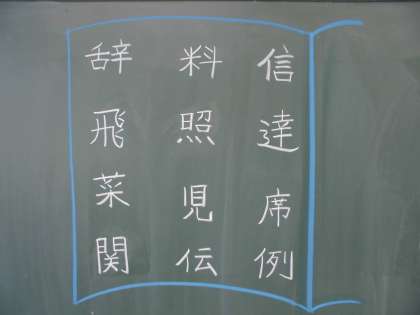 信達席例
料照児伝
辞飛菜関